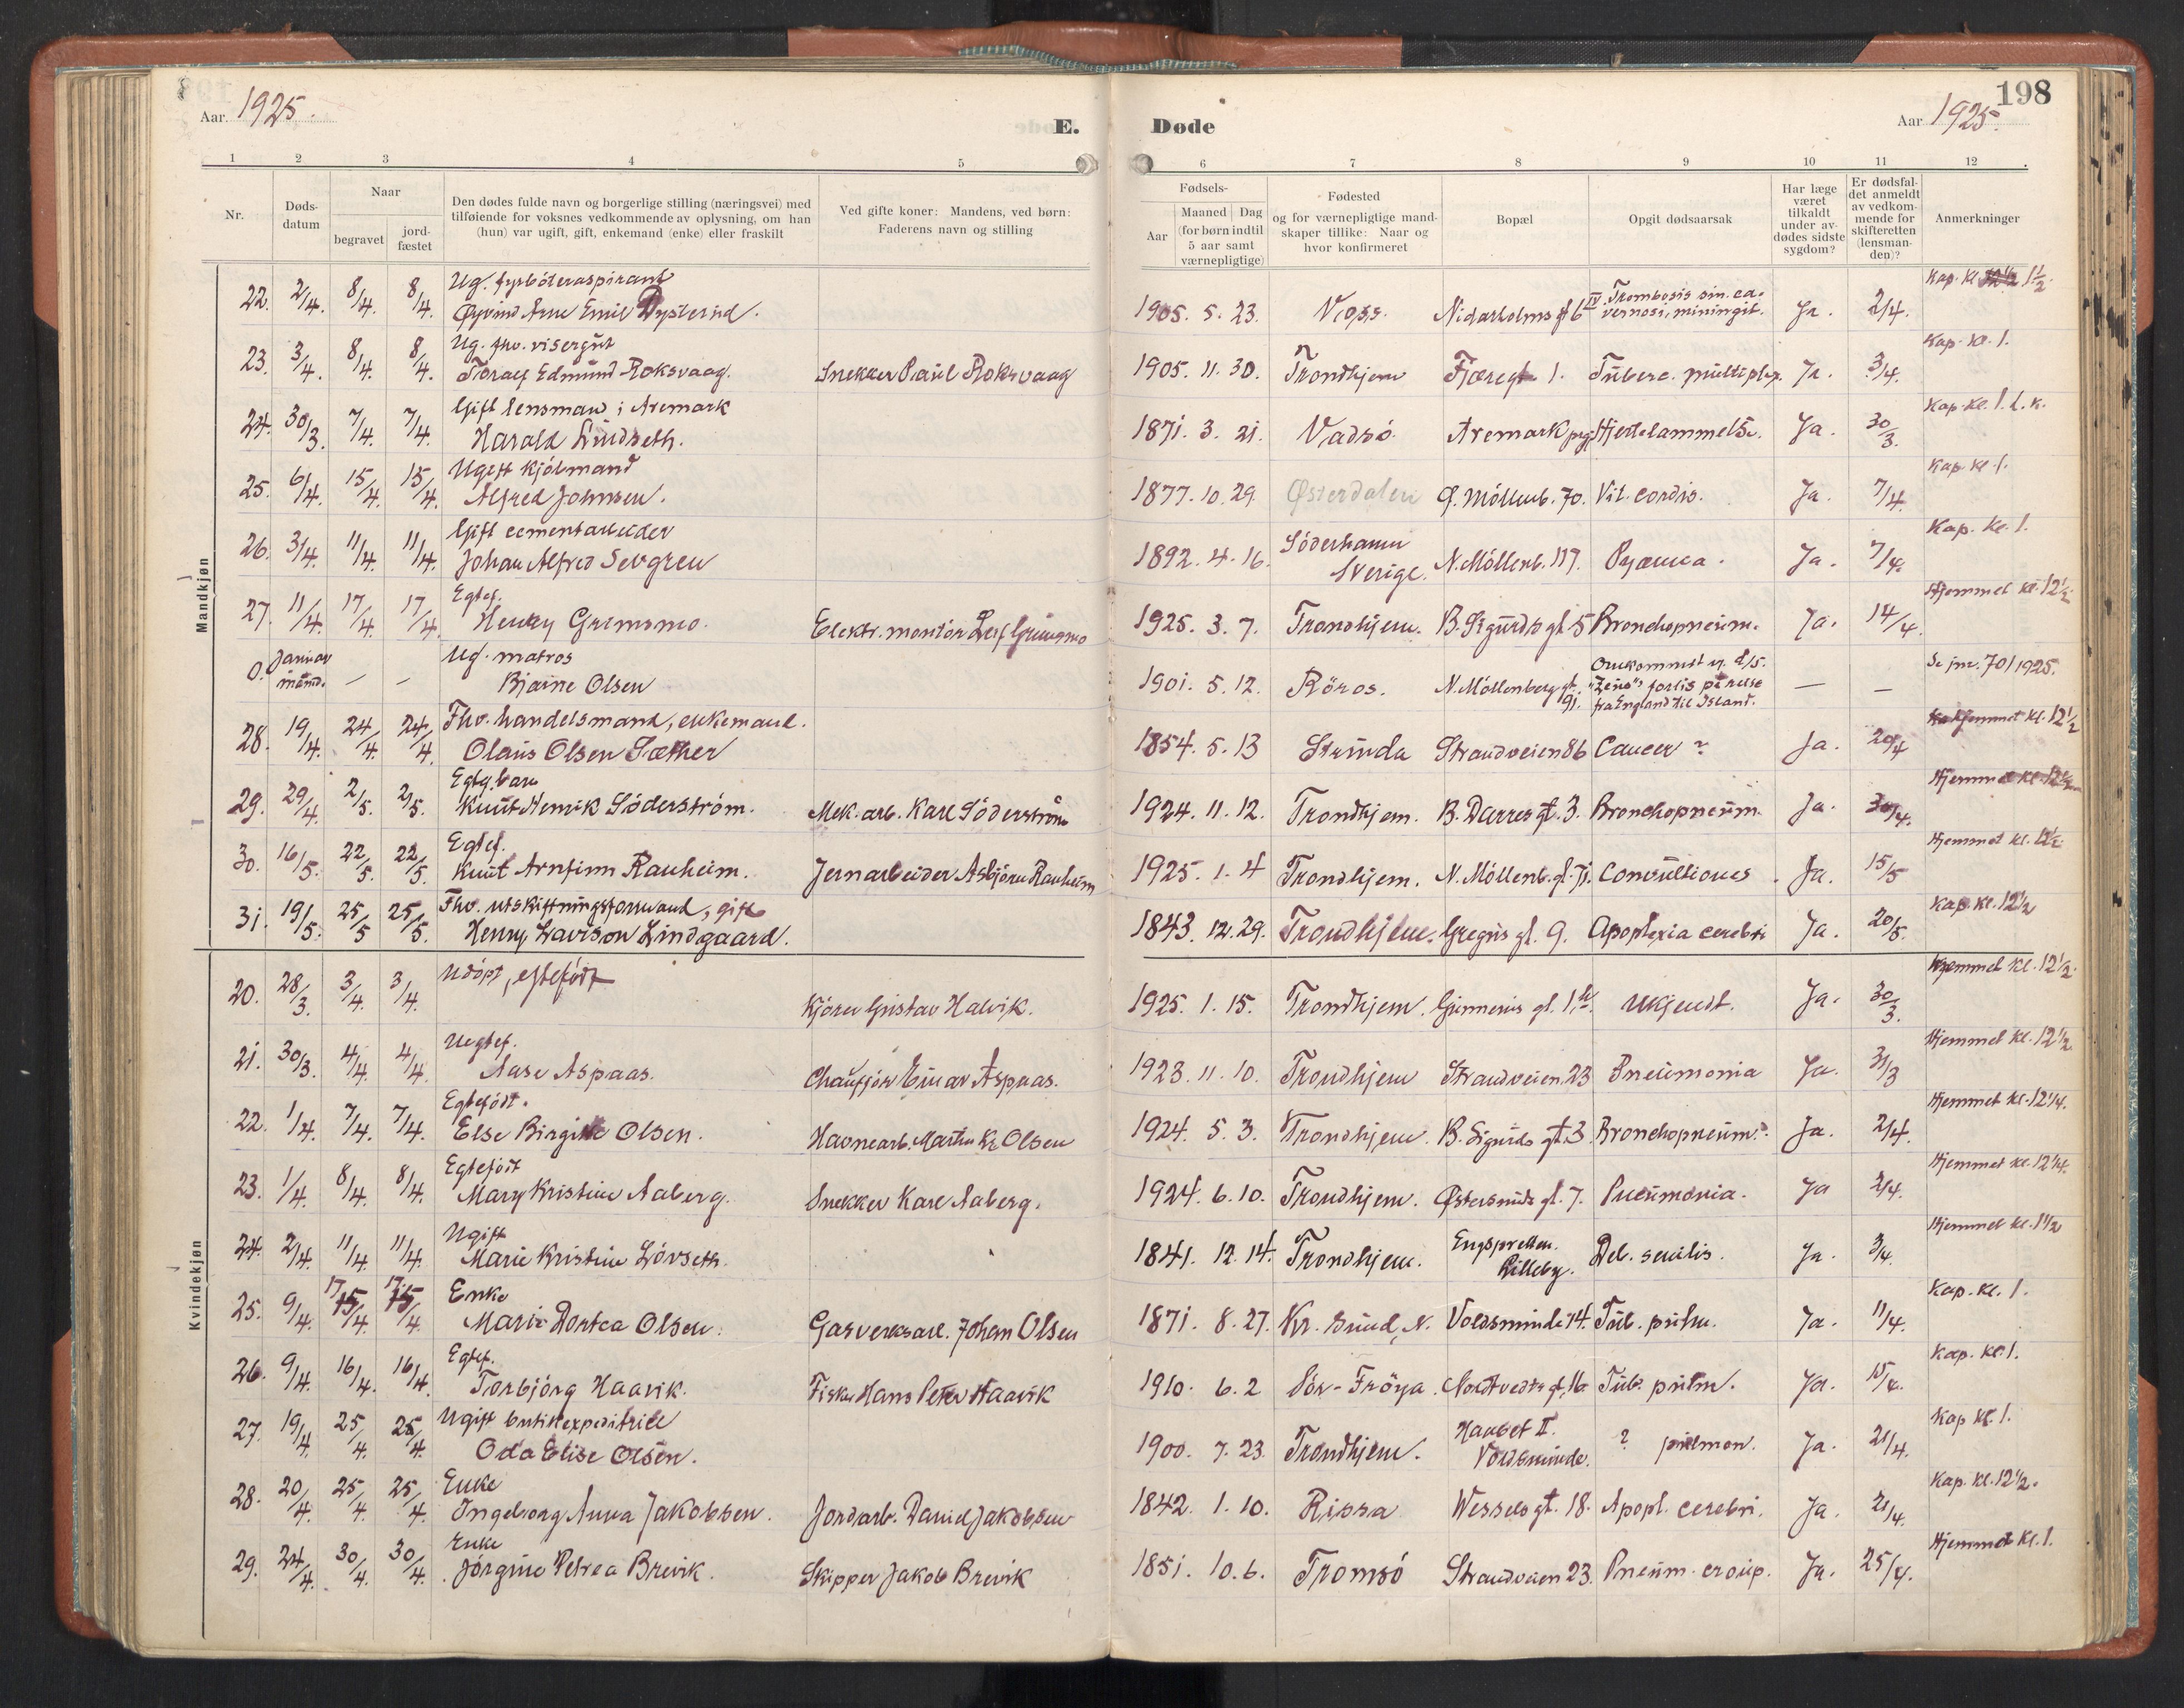 Aar 1925.
E. Døde
198
Aar 1925.
1 2 3 4 5 6 7 8 9 10 11 12
Nr.
Døds-
datum
Naar
begravet
jord-
fæstet
Den dødes fulde navn og borgerlige stilling (næringsvei) med
tilføiende for voksnes vedkommende av oplysning, om han
(hun) var ugift, gift, enkemand (enke) eller fraskilt
Ved gifte koner: Mandens, ved børn:
Faderens navn og stilling
Fødsels-
Aar
Maaned Dag
(for børn indtil
5 aar samt
værnepligtige)
Fødested
og for værnepligtige mand-
skaper tillike: Naar og
hvor konfirmeret
Bopæl
Opgit dødsaarsak
Har læge
været
tilkaldt
under av-
dødes sidste
sygdom?
Er dødsfal-
det anmeldt
av vedkom-
mende for
skifteretten
(lensman-
den)?
Anmerkninger
Mandkjøn
Ug. fyrböteraspirant
22. 2/4. 8/4. 8/4. Øyvind Arne Emil Dysterud. 1905. 5. 23. Voss. Nidarholms gt 6 IV Trombosis sin. ca-
vernosi, miningit. Ja. 2/4. Kap. Kl. 1½.
Ug. fhv. visergut
23. 3/4. 8/4. 8/4. Toralf Edmund Roksvaag. Snekker Paul Roksvaag 1905. 11. 30. Trondhjem Fjæregt 1. Tuberc. multiplex. Ja. 3/4. Kap. Kl. 1.
Gift lensmand i Aremark
24. 30/3. 7/4. 7/4. Harald Lindseth. 1871. 3. 21. Vadsö. Aremark prgj. Hjertelammelse. Ja. 30/3. Kap. Kl. 1. L. K.
Ugift kjölmand
25. 6/4. 15/4. 15/4. Alfred Johnsen. 1877. 10. 29. Østerdalen Ø. Möllenb. 70. Vit. cordis. Ja. 7/4. Kap Kl 1.
Gift cementarbeider
26. 3/4. 11/4. 11/4. Johan Alfred Sevgren 1892. 4. 16. Söderhamn
Sverige. N. Möllenb. 117. Pyæmia. Ja. 7/4. Kap. Kl. 1.
Egtef.
27. 11/4. 17/4. 17/4. Henry Gremsmo. Elektr. montör Leif Grimsmo 1925. 3. 7. Trondhjem. B. Sigurds gt 5 Bronchopneum. Ja. 14/4. Hjemmet kl. 12½
Ug. matros
0. Januar
maaned. — — Bjarne Olsen 1901. 5. 12. Röros. N. Möllenberg gt.
91. Omkommet v. d/s.
"Zeno"s forlis på reise
fra England til Island. — — Se jnr. 70/1925.
Fhv. handelsmand, enkemand.
28. 19/4. 24/4. 24/4. Olaus Olsen Sæther 1854. 5. 13 Strinda Strandveien 86 Cancer? Ja. 20/4 Hjemmet Kl. 12½
Egtef. barn
29. 29/4. 2/5. 2/5. Knut Henrik Söderström. Mek. arb. Karl Söderström 1924. 11. 12. Trondhjem. B. Darres gt. 3. Bronchopneum. Ja. 30/4. Hjemmet Kl. 12½
Egtef.
30. 16/5. 22/5. 22/5. Knut Arnfinn Rauheim. Jernarbeider Asbjörn Rauheim 1925. 1. 4 Trondhjem. N. Möllenb. gt. 71. Convultiones. Ja. 15/5 Hjemmet Kl. 12½
Fhv. utskiftningsformand, gift
31. 19/5. 25/5 25/5. Henry Davison Lindgaard. 1843. 12. 29. Trondhjem. Gregus gt. 9. Apoplexia cerebri Ja. 20/5. Kap. Kl. 12½
Kvindekjøn
Udöpt, egtefödt
20. 28/3. 3/4. 3/4. Kjörer Gustav Halvik. 1925. 1. 15. Trondhjem. Gunnerus gt. 1. Ukjendt. Ja. 30/3. Hjemmet kl. 12½.
Uegtef.
21. 30/3. 4/4. 4/4. Aase Aspaas. Chauffjör Einar Aspaas. 1923. 11. 10. Trondhjem Strandveien 23 Pneumonia Ja. 31/3 Hjemmet Kl. 12½
Egtefödt.
22. 1/4. 7/4. 7/4. Else Birgitte Olsen. Havnearb. Martin Kr. Olsen 1924. 5. 3. Trondhjem. B. Sigurds gt 3. Bronchopneum. Ja. 2/4. Hjemmet Kl. 12¼.
Egtefödt
23. 1/4. 8/4. 8/4. Mary Kristine Aaberg. Snekker Karl Aaberg. 1924. 6. 10. Trondhjem. Østersunds gt. 7. Pneumonia. Ja 2/4. Hjemmet Kl. 12¼.
Ugift
24. 2/4. 11/4. 11/4. Marie Kristine Lövseth. 1841. 12. 14. Trondhjem. Engsletten.
Lilleby. Deb. senilis. Ja. 3/4. Hjemmet Kl. 1½
Enke
25. 9/4. 17/4. 17/4 Marie Dortea Olsen. Gasverksarb. Johan Olsen 1871. 8. 27. Kr. sund, N. Voldsminde 74. Tub. pulm. Ja. 11/4. Kap. Kl. 1.
Egtef.
26. 9/4. 16/4. 16/4. Torbjörg Haavik. Fisker Hans Peter Haavik 1910. 6. 2 Sör-Fröya. Nordtvedts gt. 16 Tub. pulm. Ja. 15/4. Kap. Kl. 1.
Ugift butikexpeditrice
27. 19/4. 25/4. 25/4. Oda Elise Olsen. 1900. 7. 23. Trondhjem. Haabet II.
Voldsminde. ? pulmon. Ja. 21/4. Kap Kl. 1.
Enke
28. 20/4. 25/4. 25/4. Ingeborg Anna Jakobsen. Jordarb. Daniel Jakobsen 1842. 1. 10. Rissa Wessels gt. 18. Apopl. cerebri. Ja. 21/4. Kap. Kl. 12½.
Enke
29. 24/4. 30/4. 30/4. Jörgine Petrea Brevik. Skipper Jakob Brevik 1851. 10. 6. Tromsö Strandveien 23. Pneum. croup. Ja. 25/4. Hjemmet Kl. 1.